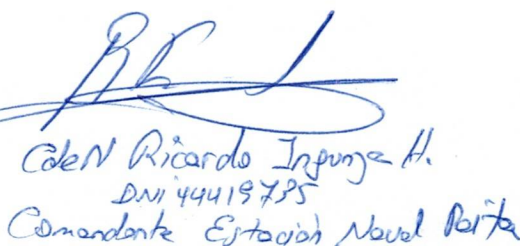 CdeN Ricardo Inpunza H.
DNI 44419735
Comandante Estación Naval Paita